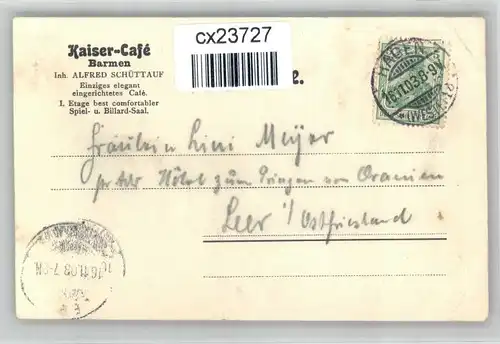 Kaiser-Café
Barmen
Inh. ALFRED SCHÜTTAUF
Einziges elegant
eingerichtetes Café.
I. Etage best comfortabler
Spiel- u. Billard-Saal.
cx23727
HAGEN
Fräulein Lini Meijer
pr Adr Hôtel zum Prinzen von Oranien
Leer i/ Ostfriesland
16.11.03.7-8